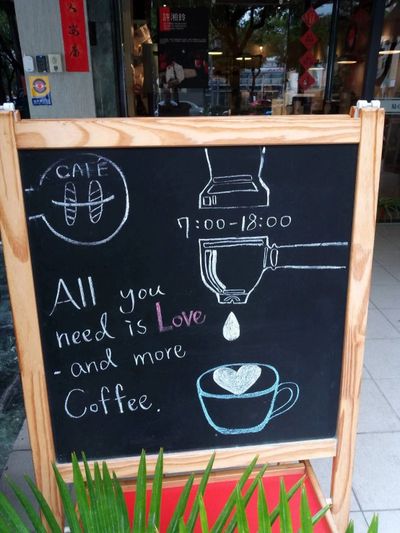 許湘鈴
CAFE
7:00-18:00
All you
need is Love
- and more
Coffee.